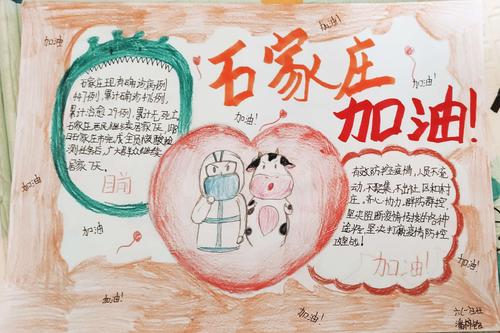 加油
加油!
石家庄
加油!
石家庄现有确诊病例
447例,累计确诊476例,
累计治愈29例,累计无死亡
石家庄居民继续居家7天,
石家庄市完成全员核酸检
测任务后,广大群众继续
居家7天.
目前
加油!
加油!
有效防控疫情,人员不流
动,不聚集,不出社区和村
庄,齐心协力,群防群控,
坚决阻断疫情传播的各种
途径,坚决打赢疫情防控
攻坚战!
加油!
加油
加油
加油!
加油!
加油!
加油!
六(一)班